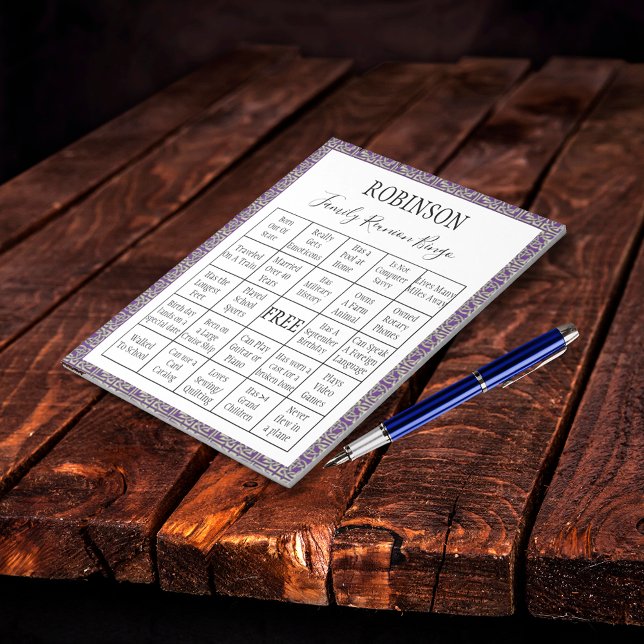 ROBINSON
Family Reunion Bingo
Born
Out Of
State
Really
Gets
Emoticons
Has a
Pool at
Home
Is Not
Computer
Savvy
Lives Many
Miles Away
Traveled
On A Train
Married
Over 40
Years
Has
Military
History
Owns
A Farm
Animal
Owned
Rotary
Phones
Has the
Longest
Feet
Played
School
Sports
FREE
Has A
September
Birthday
Can Speak
A Foreign
Language
Birth day
lands on a
special date
Been on a
Large
Cruise Ship
Can Play
Guitar or
Piano
Has worn a
cast for a
broken bone
Plays
Video
Games
Walked
To School
Can use a
Card
Catalog
Loves
Sewing/
Quilting
Has >4
Grand
Children
Never
flew in
a plane